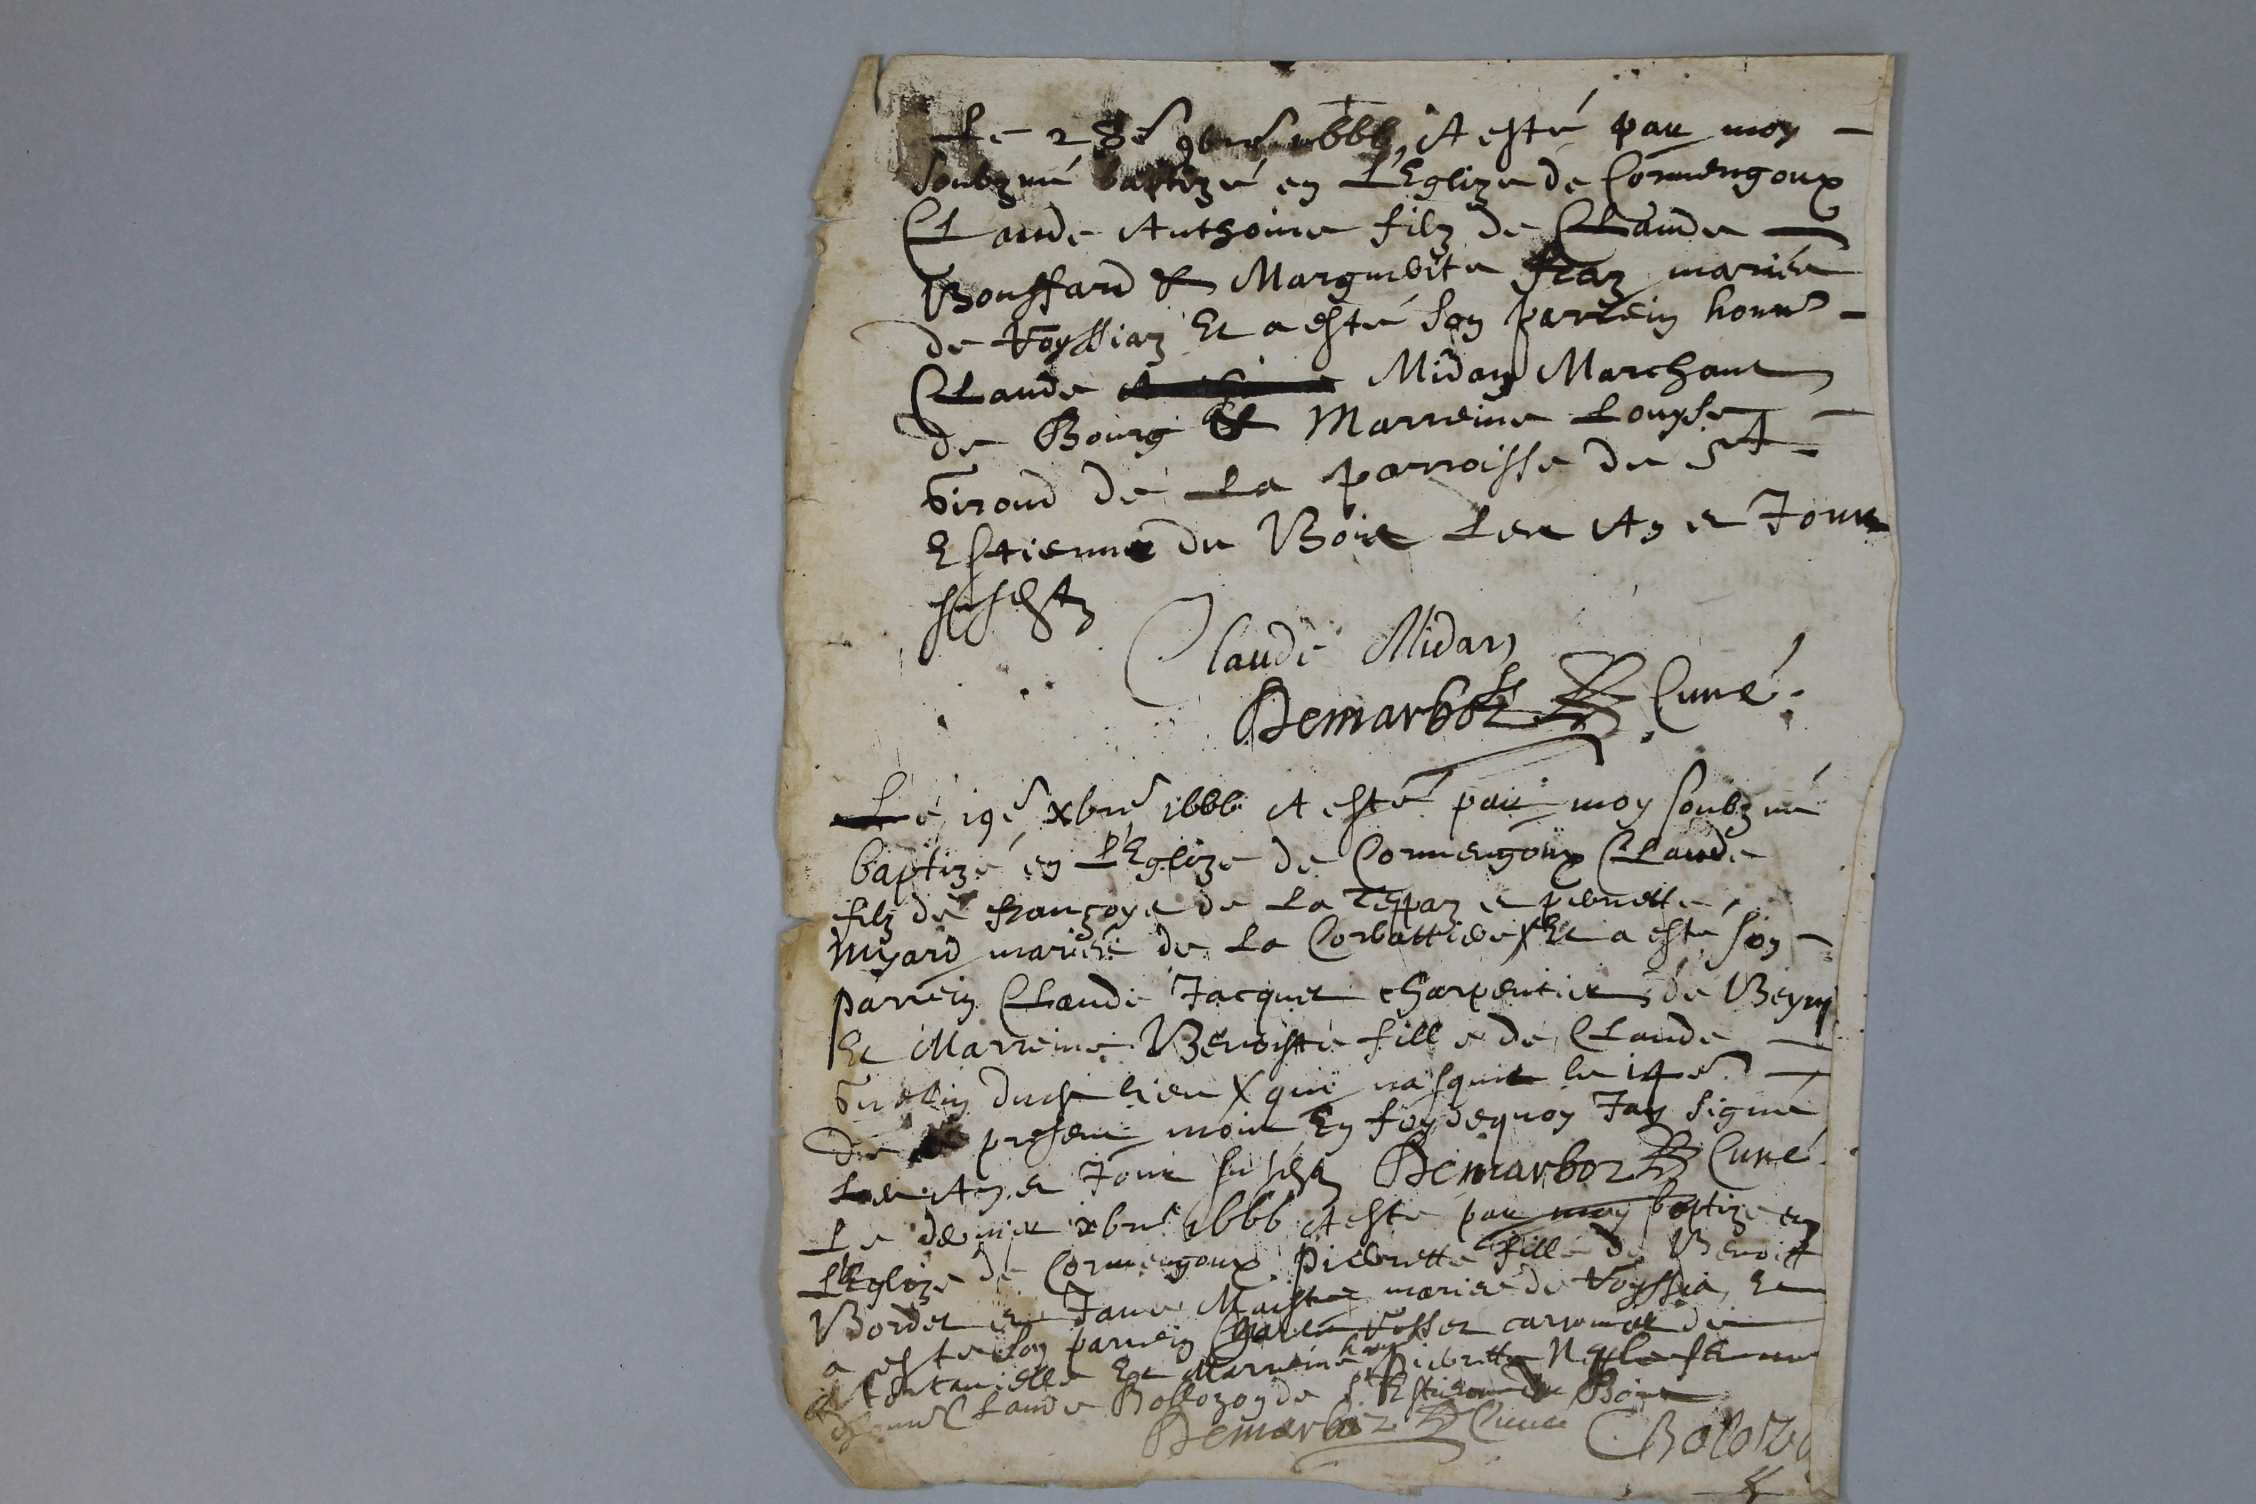 Le 28e 9bre 1666, A esté par moy
soubzné baptizé en L'Eglize de Cormengoux
Claude Anthoine filz de Claude
Bouffard & Marguerite mariés
de Voyssiaz Et a esté son parrein honn
Claude Midan Marchant
de Bourg & Marreine Louyse
Giroud de La parroisse de St
Estienne du Bois Les An et Jour
susdt
Claude Midan
Demarboz Curé
Le 19e xbre 1666 A esté par moy soubzné
baptizé en L'Eglize de Cormengoux Claude
filz de françoys de La Teppaz et pernette
Myard mariés de La Corbattiere Et a esté son
parrein Claude Jacquet charpentier de Beyny
Et Marreine Benoiste fille de Claude
dudt lieu qui nasquit le 14e
du present mois En foy de quoy Jay signé
Les An et Jour susdt Demarboz Curé
Le dernier xbre 1666 A esté par moy baptizé en
L'Eglize de Cormengoux Pierrette fille de Benoist
Bordet et Jane mariés de Voyssia, Et
a esté son parrein de
Et Marreine Pierrette femme
Claude Bollozon de St Estienne du Bois
Demarboz Curé